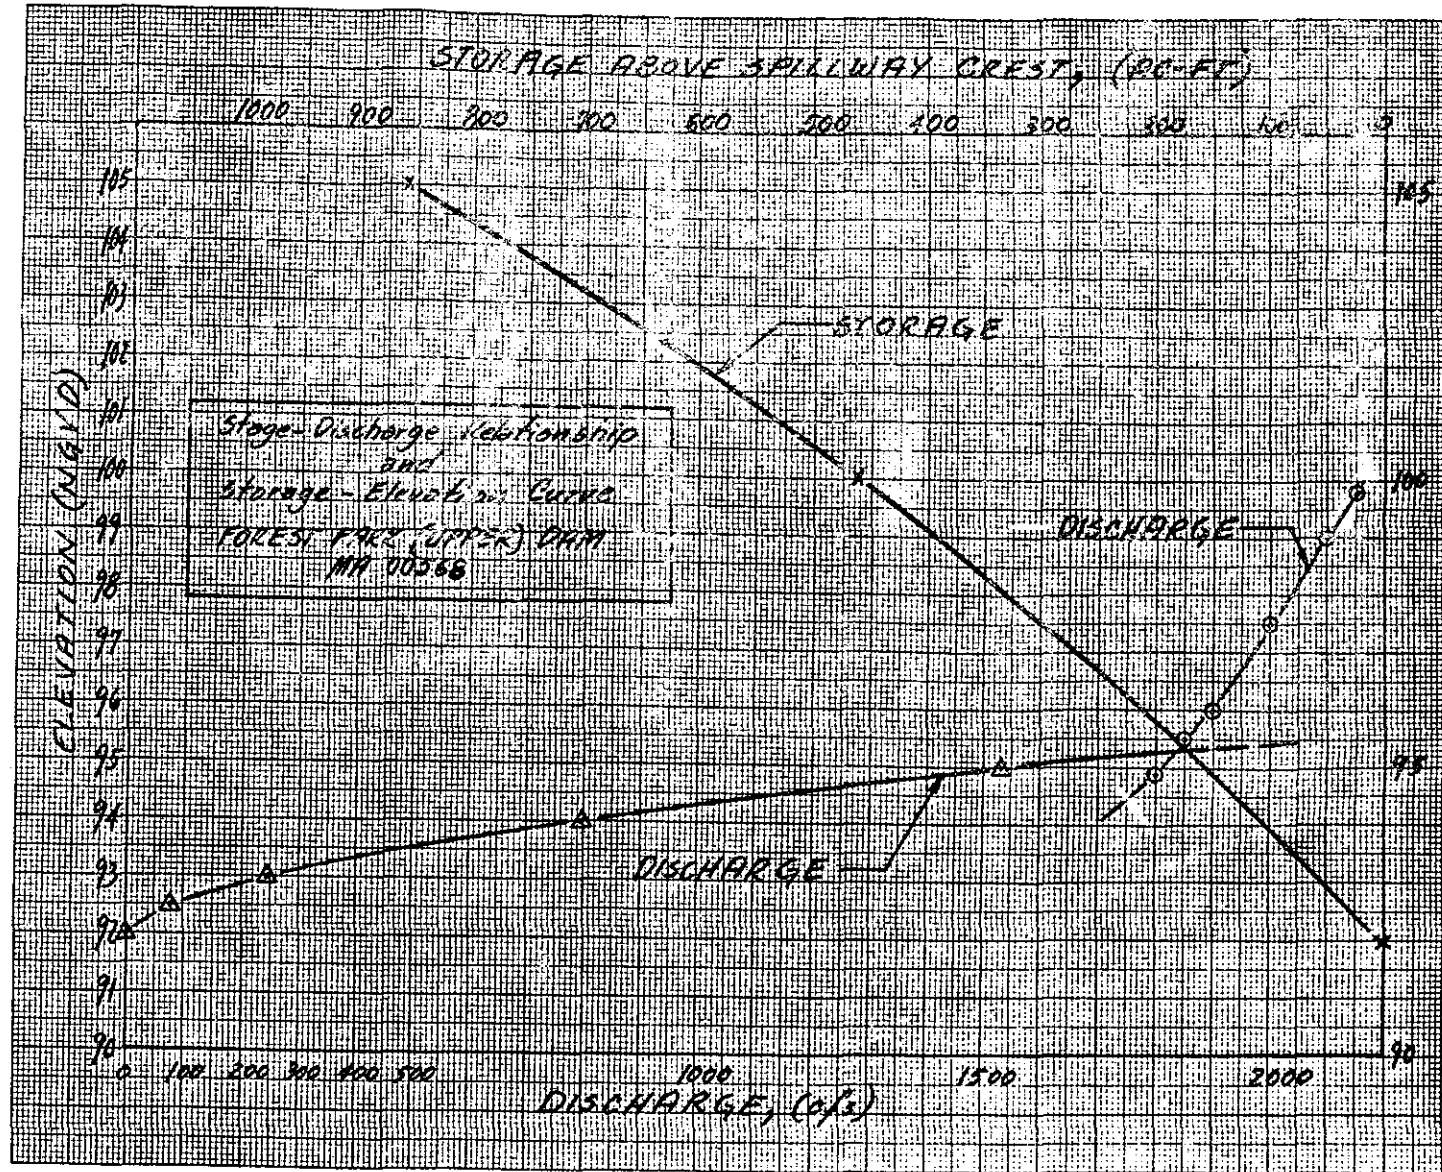 STORAGE ABOVE SPILLWAY CREST, (AC-FT)
1000 900 800 700 600 500 400 300 200 100 0
105
104
103
102
101
100
99
98
97
96
95
94
93
92
91
90
ELEVATION (NGVD)
105
100
95
90
STORAGE
Stage-Discharge Relationship
and
Storage-Elevation Curve
FOREST PARK (UPPER) DAM
MA 00568
DISCHARGE
DISCHARGE
0 100 200 300 400 500 1000 1500 2000
DISCHARGE, (cfs)